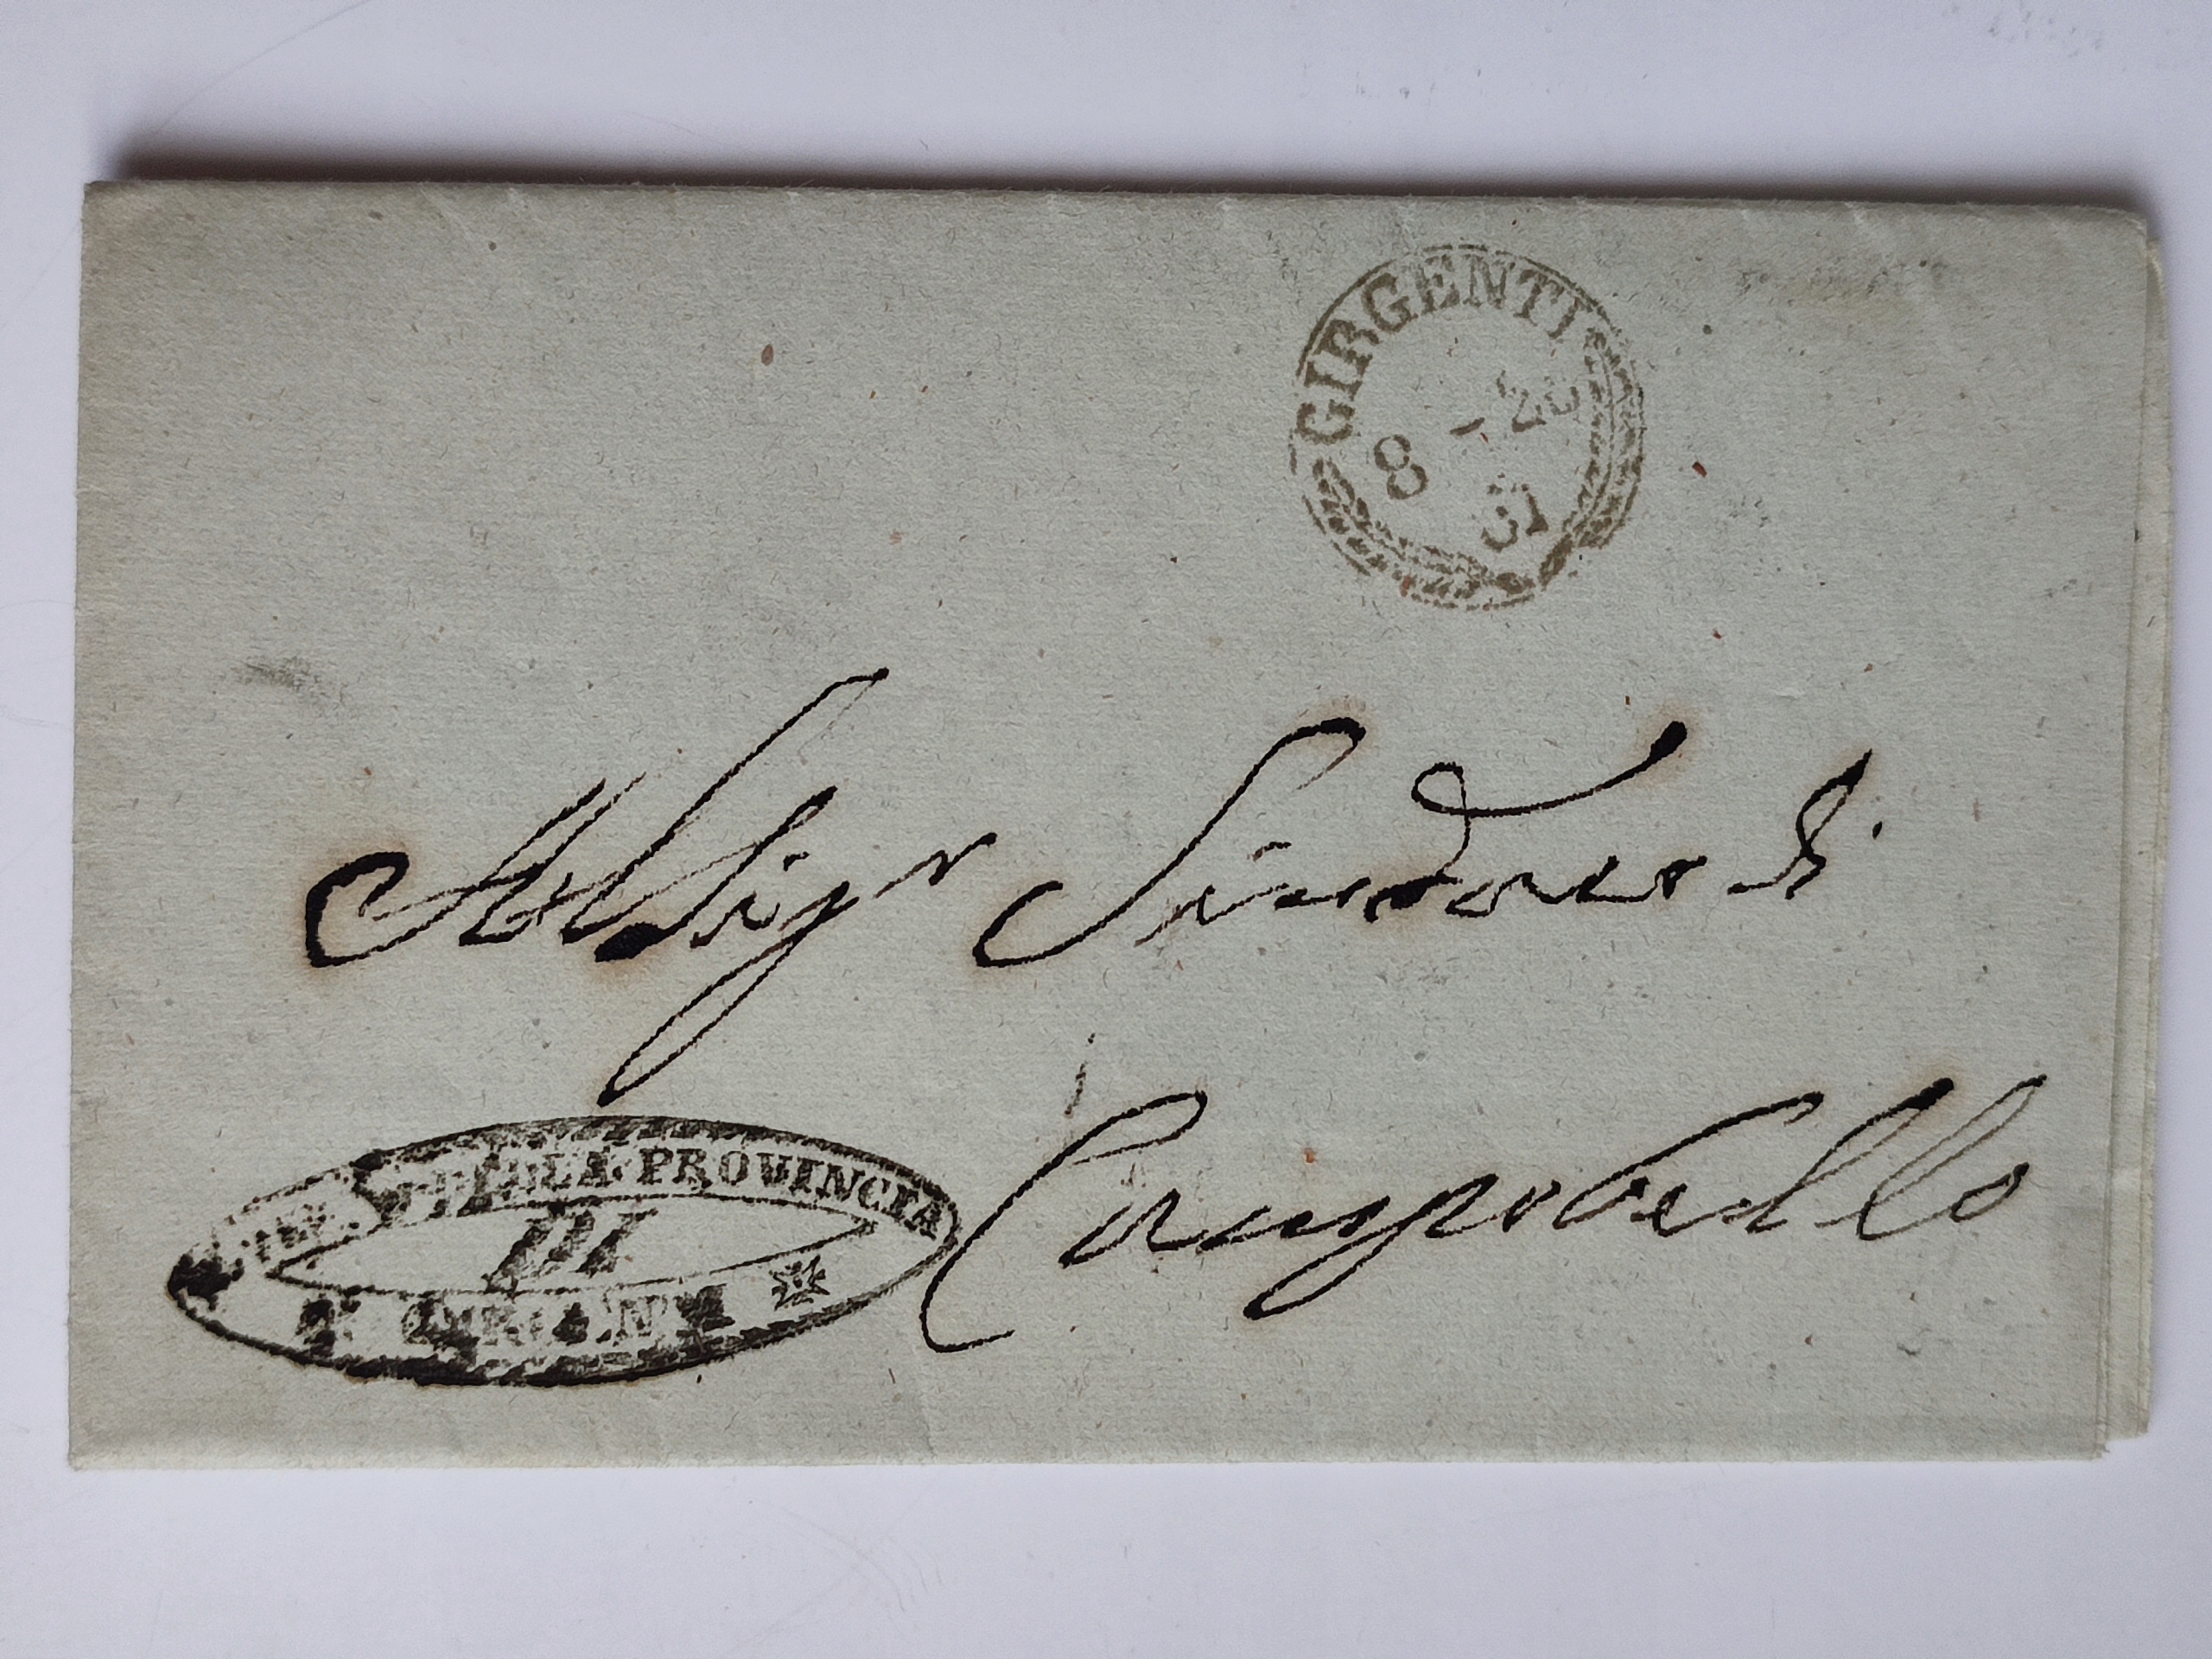 GIRGENTI
8
Al Sigr Sindaco di
Campobello
DELLA PROVINCIA
DI